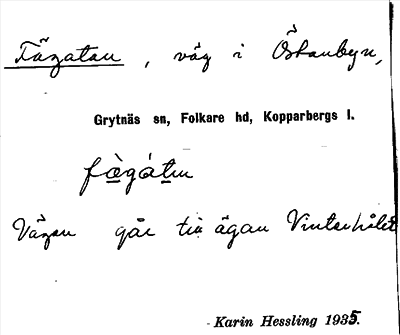 Fägatan, väg i Östanbyn,
Grytnäs sn, Folkare hd, Kopparbergs l.
fæ̀gátan
Vägen går till ägan Vinterhålet
Karin Hessling 1935.